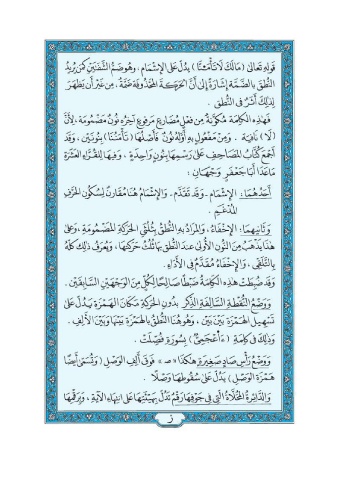 قَولِهِ تَعَالَىٰ ( مَالَكَ لَا تَأْمَ۫نَّا ) يدُلّ عَلَى الإِشْمَام ، وهُوضَمُّ الشَّفَتَيْنِ كَمَن يُرِيدُ
النُّطقَ بالضَّمَّة إِشَارَةً إِلَىٰ أَنَّ الحَرَكَةَ المَحْذُوفَةَ ضَمَّةٌ ، مِن غَيْرِ أَن يَظْهَرَ
لِذَلِكَ أَثَرٌ فِى النُّطقِ .
فَهَذِهِ الكَلِمَةُ مُكَوَّنةٌ مِن فِعلٍ مُضَارِعٍ مَرفُوعٍ آخِرُهُ نُونٌ مَضمُومَةٌ ، لِأَنَّ
( لَا ) نَافِيَةٌ . وَمِن مَفْعُولٍ بِهِ أَوَّلُهُ نُونٌ فَأَصْلُهَا ( تَأْمَنُنَا ) بِنُونَيْنِ ، وَقَد
أَجْمَعَ كُتَّابُ المَصَاحِفِ عَلَىٰ رَسْمِهَا بنُونٍ وَاحِدَةٍ . وَفِيهَا لِلقُرَّاءِ العَشَرَةِ
مَاعَدَا أَبَا جَعْفَرٍ وَجْهَانِ :
أَحَدُهُمَا : الإِشْمَام - وَقَد تَقَدَّمَ - وَالإِشْمَام هُنَا مُقَارِنٌ لِسُكُونِ الحَرْفِ
المُدْغَمِ .
وَثَانِيهِمَا : الإِخْفَاءُ ، وَالمُرَادُ بِهِ النُّطْقُ بثُلُثَيِ الحَرَكَةِ المَضْمُومَةِ ، وَعَلَىٰ
هَذا يَذْهَبُ مِنَ النُّونِ الأُولَىٰ عِندَ النُّطقِ بهَا ثُلُثُ حَرَكَتِهَا ، وَيُعْرَفُ ذَلِكَ كلُّهُ
بِالتَّلَقِّى ، وَالإِخْفَاءُ مُقَدَّمٌ فِى الأَدَاءِ .
وَقَد ضُبِطَت هَذِهِ الكَلِمَةُ ضَبْطًا صَالِحًا لِكُلٍّ مِنَ الوَجْهَيْنِ السَّابِقَيْنِ .
وَوَضْعُ النُّقْطَةِ السَّالِفَةِ الذِّكْرِ بدُونِ الحَرَكَةِ مَكَانَ الهَمْزَةِ يَدُلُّ عَلَىٰ
تَسْهِيلِ الهَمْزَةِ بَيْنَ بَيْنَ ، وَهُوَ هُنَا النُّطْقُ بالهَمْزَةِ بَيْنَهَا وَبَيْنَ الأَلِفِ .
وَذٰلِكَ فِى كَلِمَةِ ( ءَا۬عْجَمِىٌّ ) بِسُورَةِ فُصِّلَتْ .
وَوَضْعُ رَأسِ صَادٍ صَغِيرَةٍ هٰكَذَا « صـ » فَوقَ أَلِفِ الوَصْلِ ( وَتُسَمَّىٰ أَيضًا
هَمْزَةَ الوَصْلِ ) يَدُلُّ عَلَىٰ سُقُوطِهَا وَصْلًا .
وَالدَّائِرَةُ المُحَلَّاةُ الَّتِى فِى جَوْفِهَا رَقْمٌ تَدُلُّ بِهَيْئَتِهَا عَلَىٰ انتِهَاءِ الآيَةِ ، وَبِرَقْمِهَا
ز